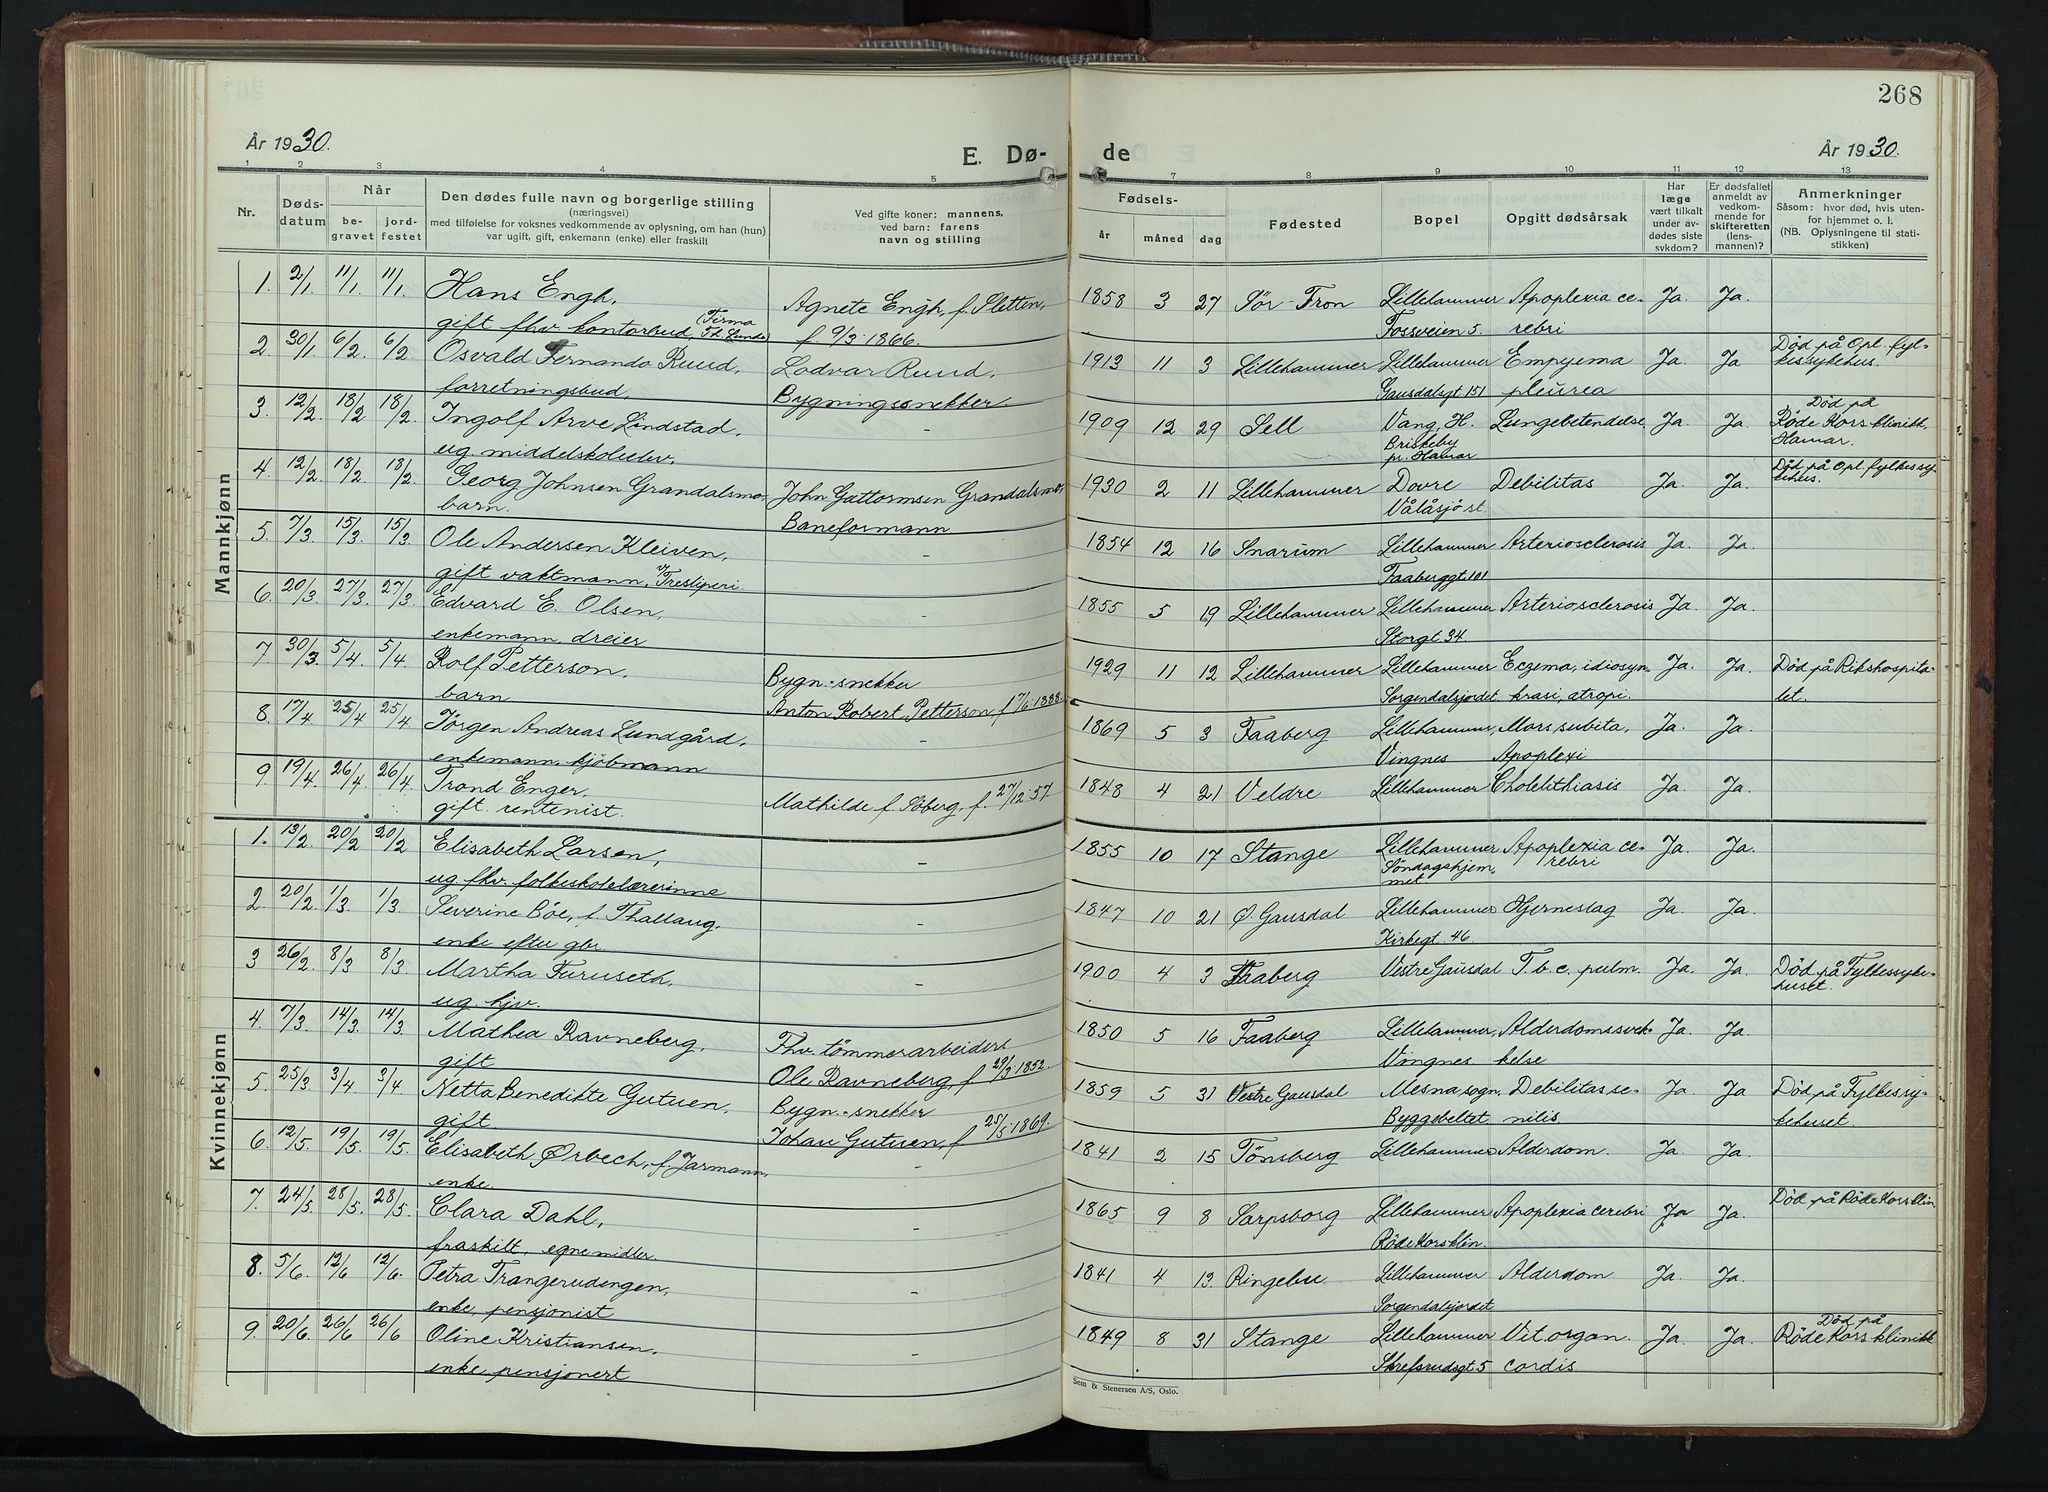 268
År 1930.
E. Dø-
de
År 1930.
1 2 3 4 5 7 8 9 10 11 12 13
Nr.
Døds-
datum
Når
be-
gravet
jord-
festet
Den dødes fulle navn og borgerlige stilling
(næringsvei)
med tilføielse for voksnes vedkommende av oplysning, om han (hun)
var ugift, gift, enkemann (enke) eller fraskilt
Ved gifte koner: mannens,
ved barn: farens
navn og stilling
Fødsels-
år måned dag
Fødested
Bopel
Opgitt dødsårsak
Har
læge
vært tilkalt
under av-
dødes siste
sykdom?
Er dødsfallet
anmeldt av
vedkom-
mende for
skifteretten
(lens-
mannen)?
Anmerkninger
Såsom: hvor død, hvis uten-
for hjemmet o. l.
(NB. Oplysningene til stati-
stikken)
Mannkjønn
1. 2/1. 11/1. 11/1. Hans Engh, Agnete Engh, f. Sletten, 1858 3 27 Sør-Fron Lillehammer Apoplexia ce- Ja. Ja.
gift fhv. kontorbud, (Firma Th. Lunde) f. 9/3 1866. Fossveien 5. rebri
2. 30/1. 6/2. 6/2. Osvald Fernando Ruud, Lodvar Ruud, 1913 11 3 Lillehammer Lillehammer Empyema Ja. Ja Død på Opl. fyl-
kessykehus.
forretningsbud. Bygningssnekker. Gausdalsgt 151 pleurea
3. 12/2. 18/2 18/2. Ingolf Arve Lindstad, - 1909 12 29 Sell Vang, H. Lungebetendelse Ja. Ja. Død på
Røde Kors klinikk,
Hamar.
ug. middelskoleelev. Briskeby
pr. Hamar
4. 12/2. 18/2. 18/2. Georg Johnsen Grandalsmo, John Guttormsen Grandalsmo, 1930 2 11 Lillehammer Dovre Debilitas Ja. Ja. Død på Opl. fylkessy-
kehus.
barn. Baneformann. Vålåsjø st.
5. 7/3. 15/3. 15/3. Ole Andersen Kleiven, - 1854 12 16 Snarum Lillehammer Arteriosclerosis Ja. Ja.
gift vaktmann, v/Tresliperi. Faaberggt. 101
6. 20/3. 27/3. 27/3. Edvard E. Olsen, - 1855 5 19 Lillehammer Lillehammer Arteriosclerosis Ja. Ja.
enkemann, dreier Storgt. 34
7. 30/3. 5/4. 5/4. Rolf Petterson, Bygn.-snekker 1929 11 12 Lillehammer Lillehammer Eczema, idiosyn- Ja. Ja. Død på Rikshospita-
let.
barn Anton Robert Petterson, f. 17/6 1888. Sorgendalsjordet krasi, atropi.
8. 17/4 25/4 25/4. Jørgen Andreas Lundgård, - 1869 5 3 Faaberg Lillehammer, Mors subita, Ja. Ja.
enkemann, kjøbmann Vingnes Apoplexi
9. 19/4. 26/4. 26/4. Trond Enger, 1848 4 21 Veldre Lillehammer Cholelithiasis Ja. Ja.
gift. rentenist. Mathilde f. Söberg, f. 27/12 57
Kvinnekjønn
1. 13/2. 20/2 20/2 Elisabeth Larsen, - 1855 10 17 Stange Lillehammer Apoplexia ce- Ja. Ja.
ug fhv. folkeskolelærerinne Søndagshjem-
met rebri
2. 20/2. 1/3. 1/3. Severine Böe, f. Thallaug. - 1847 10 21 Ø. Gausdal Lillehammer Hjerneslag Ja. Ja.
enke efter gbr. Kirkegt. 46
3 26/2. 8/3 8/3. Martha Furuseth, - 1900 4 3 Faaberg Vestre Gausdal T. b. c. pulm. Ja. Ja. Død på Fylkessyke-
huset.
ug. hjv.
4. 7/3. 14/3. 14/3. Mathea Ravneberg, Fhv. tömmerarbeider 1850 5 16 Faaberg Lillehammer, Alderdomssvek- Ja. Ja.
gift Ole Ravneberg, f. 29/3 1852. Vingnes kelse
5. 25/3. 3/4. 3/4. Netta Benedikte Gutuen, Bygn.-snekker 1859 5 31 Vestre Gausdal Mesna sogn, Debilitas se- Ja. Ja Død på Fylkessy-
kehuset.
gift. Johan Gutuen, f. 25/5 1869. Byggebeltet nilis.
6. 12/5 19/5. 19/5. Elisabeth Ørbech, f. Jarmann, - 1841 2 15 Tönsberg Lillehammer Alderdom. Ja. Ja.
enke.
7. 24/5 28/5. 28/5. Clara Dahl, - 1865 9 8 Sarpsborg Lillehammer Apoplexia cerebri Ja Ja. Død på Røde Kors klin.
fraskilt, egne midler. Røde Kors klin.
8. 5/6. 12/6 12/6. Petra Trangerudengen, - 1841 4 13. Ringebu Lillehammer Alderdom Ja. Ja.
enke, pensjonist Sorgendalsjordet
9. 20/6. 26/6 26/6 Oline Kristiansen, - 1849 8 31 Stange Lillehammer Vit. organ. Ja. Ja. Død på
Røde Kors klinikk
enke, pensjonert Skrefsrudsgt 5 cordis
Sem & Stenersen A/S, Oslo.